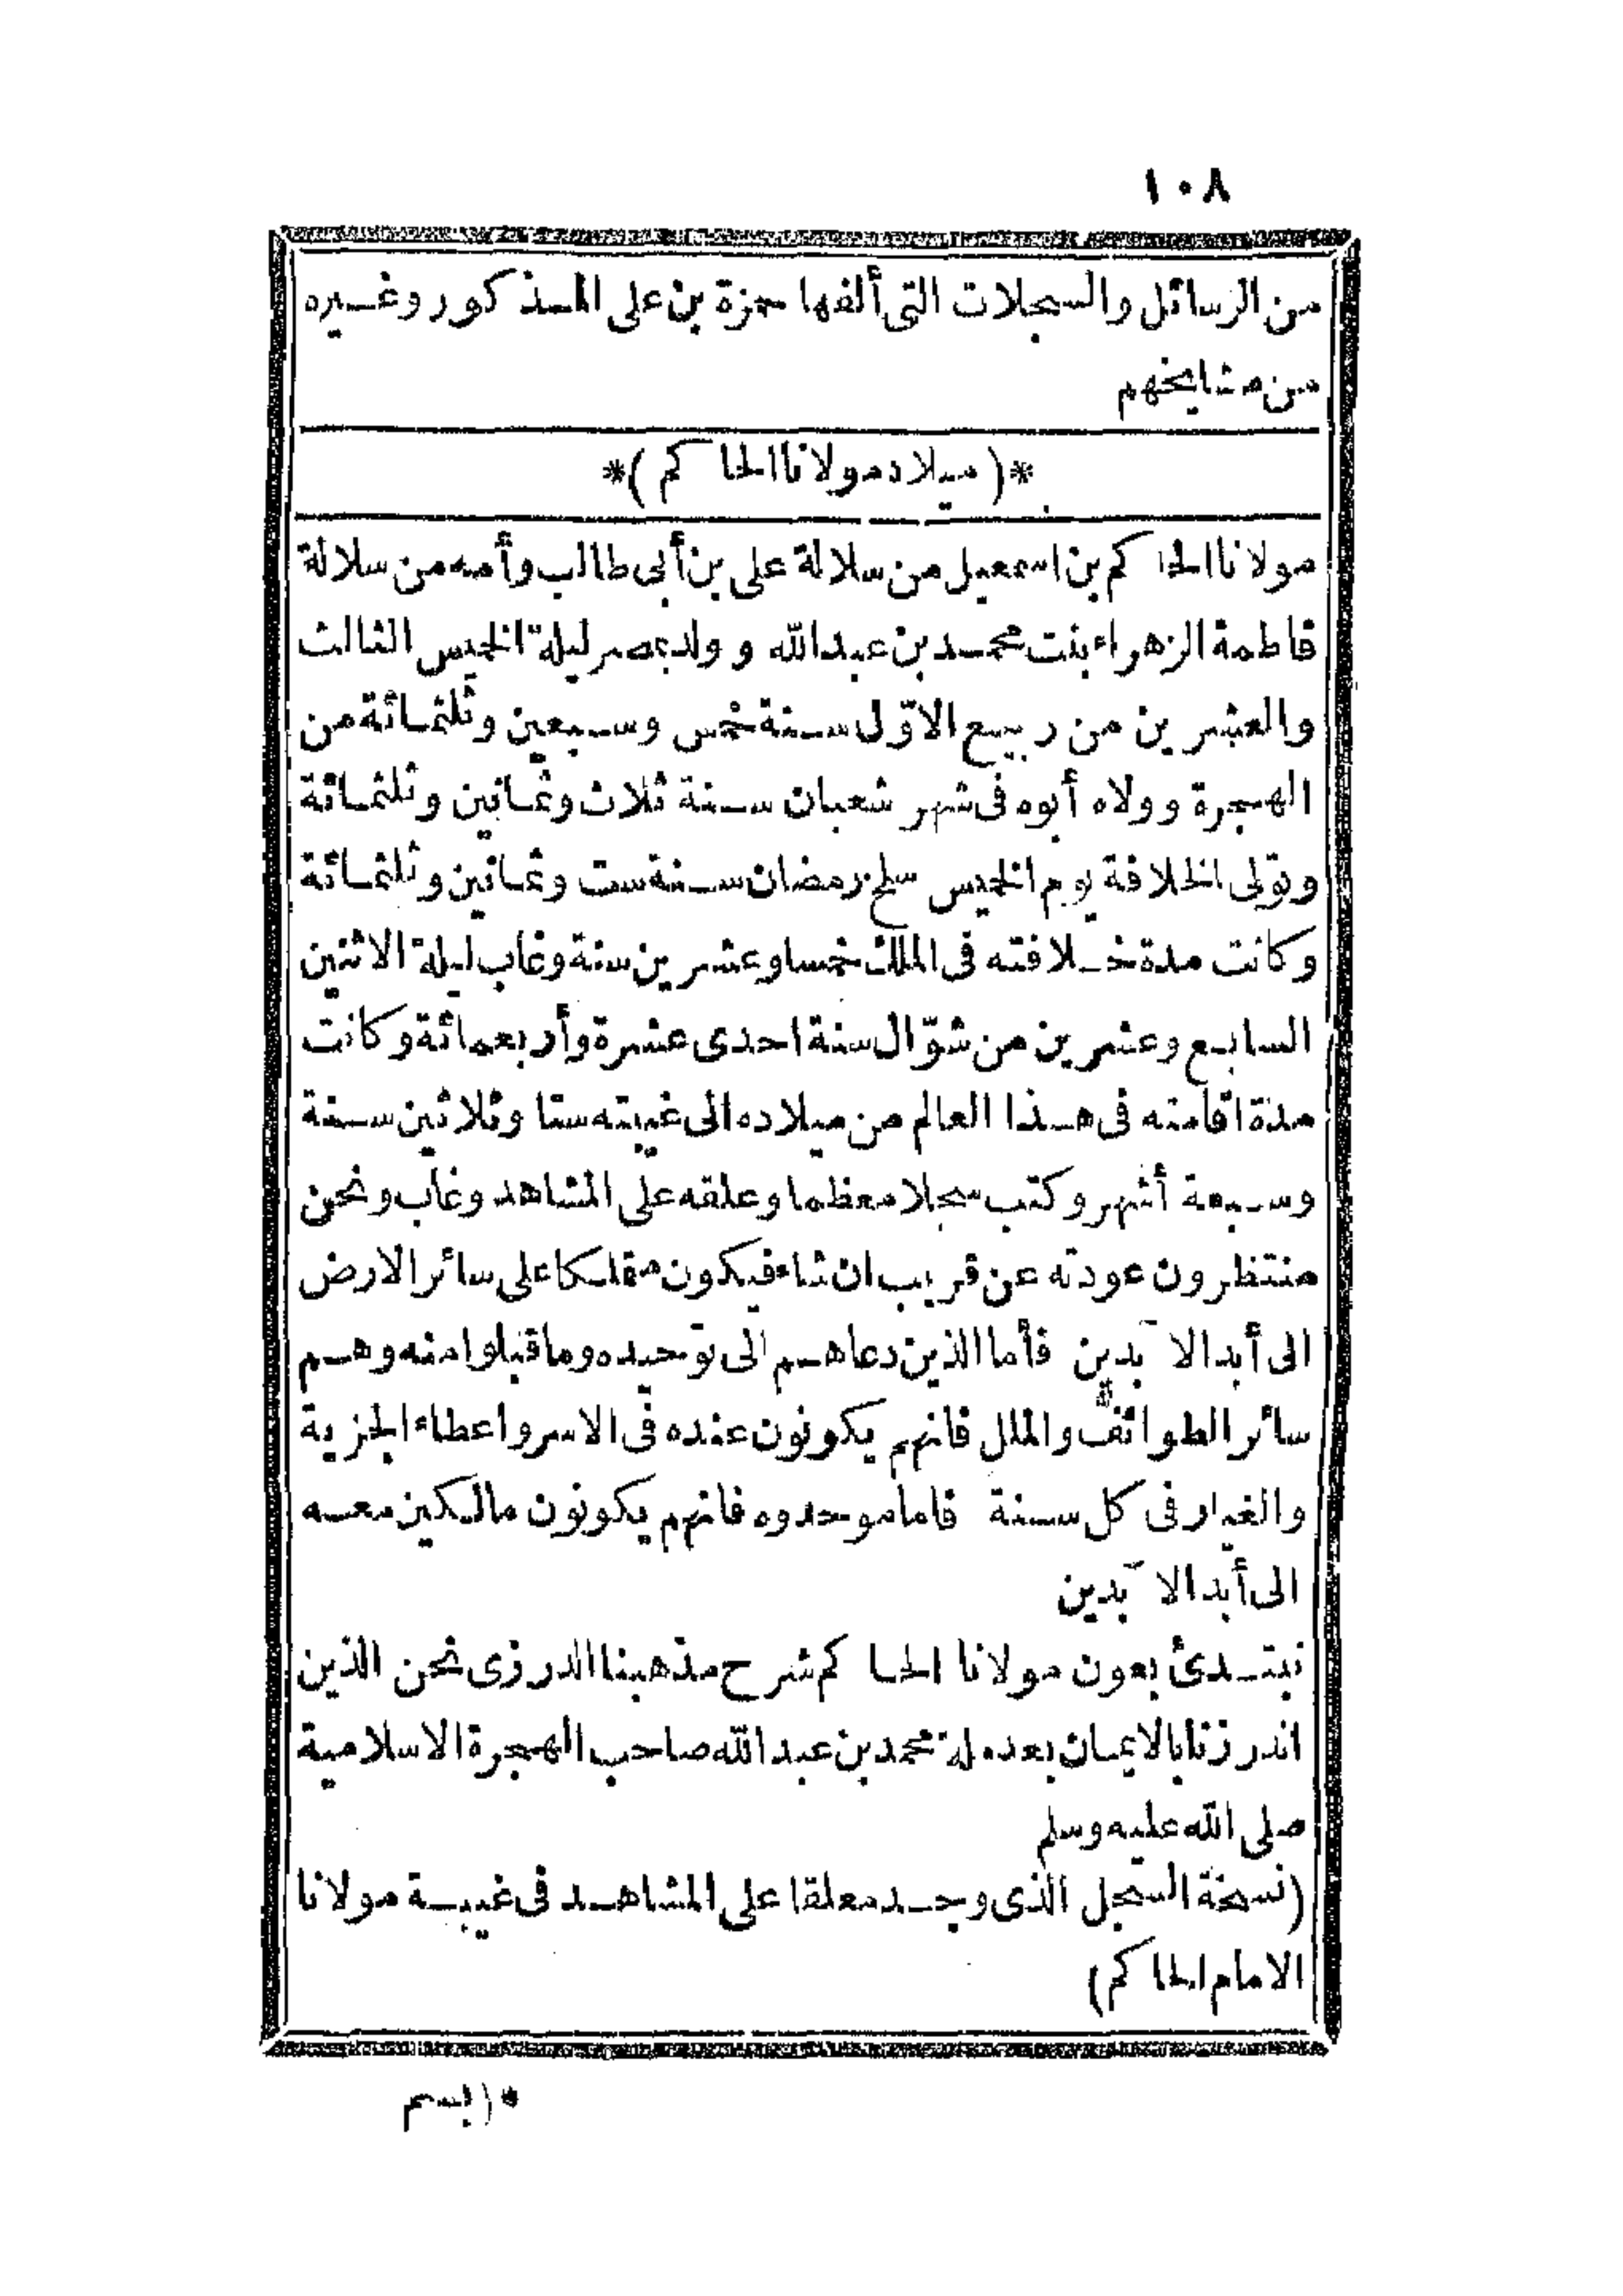 ١٠٨
من الرسائل والسجلات التى ألفها حمزة بن على المذكور وغيره
من مشايخهم
*(ميلاد مولانا الحاكم)*
مولانا الحاكم بن اسمعيل من سلالة على بن أبى طالب وأمه من سلالة
فاطمة الزهراء بنت محمد بن عبد الله وولد بمصر ليلة الخميس الثالث
والعشرين من ربيع الاوّل سنة خمس وسبعين وثلثمائة من
الهجرة وولاه أبوه فى شهر شعبان سنة ثلاث وثمانين وثلثمائة
وتولى الخلافة يوم الخميس سلخ رمضان سنة ست وثمانين وثلثمائة
وكانت مدة خلافته فى الملك خمسا وعشرين سنة وغاب ليلة الاثنين
السابع وعشرين من شوّال سنة احدى عشرة وأربعمائة وكانت
مدّة اقامته فى هذا العالم من ميلاده الى غيبته ستا وثلاثين سنة
وسبعة أشهر وكتب سجلا معظما وعلقه على المشاهد وغاب ونحن
منتظرون عودته عن قريب ان شاء فيكون متملكا على سائر الارض
الى أبد الآبدين فأما الذين دعاهم الى توحيده وما قبلوا منه وهم
سائر الطوائف والملل فانهم يكونون عنده فى الاسر واعطاء الجزية
والغيار فى كل سنة فاما موحدوه فانهم يكونون مالكين معه
الى أبد الآبدين
نبتدئ بعون مولانا الحاكم شرح مذهبنا الدرزى نحن الذين
اندرزنا بالايمان بعد ملة محمد بن عبد الله صاحب الهجرة الاسلامية
صلى الله عليه وسلم
(نسخة السجل الذى وجد معلقا على المشاهد فى غيبة مولانا
الامام الحاكم)
*(بسم